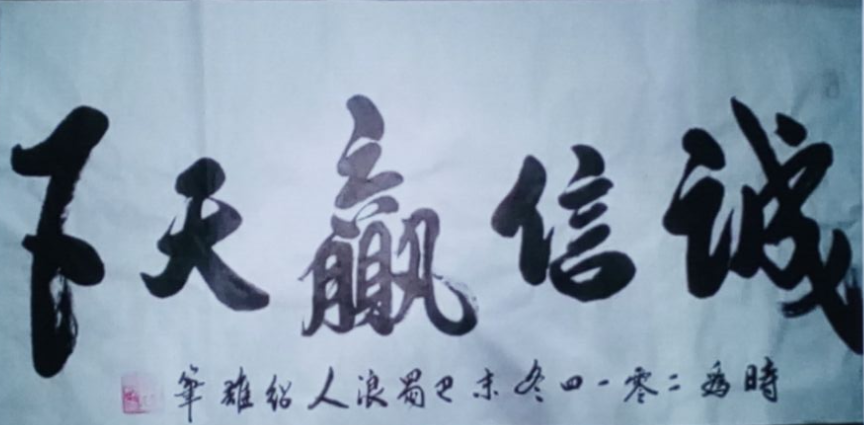 诚信赢天下
時為二零一四冬末巴蜀浪人紹雄筆